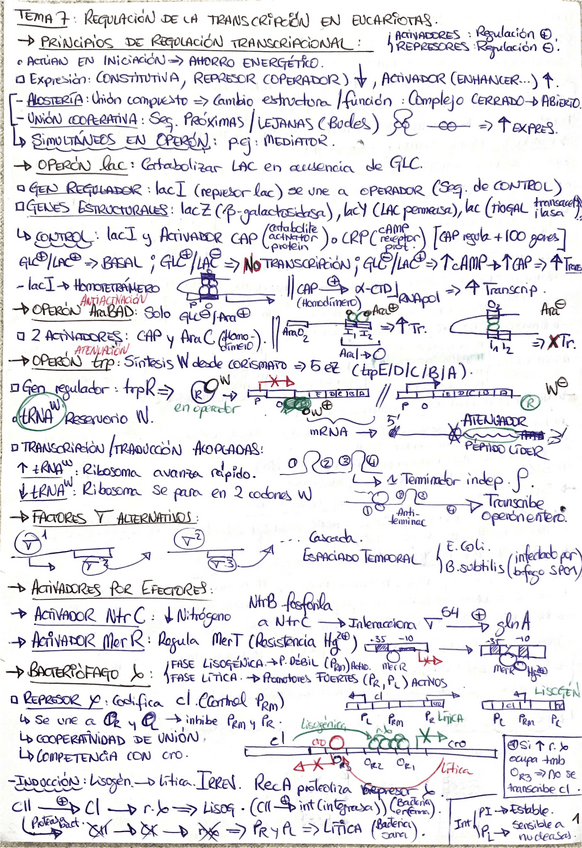 TEMA 7: REGULACIÓN DE LA TRANSCRIPCIÓN EN EUCARIOTAS.
→ PRINCIPIOS DE REGULACIÓN TRANSCRIPCIONAL: ACTIVADORES: Regulación ⊕.
REPRESORES: Regulación ⊖.
• ACTÚAN EN INICIACIÓN ⇒ AHORRO ENERGÉTICO.
□ EXPRESIÓN: CONSTITUTIVA, REPRESOR (OPERADOR) ↓, ACTIVADOR (ENHANCER...) ↑.
- ALOSTERÍA: Unión compuesto ⇒ Cambio estructura / función: Complejo CERRADO → ABIERTO.
- UNIÓN COOPERATIVA: Seq. PRÓXIMAS / LEJANAS (Bucles) ⇒ ↑ EXPRES.
↳ SIMULTÁNEOS EN OPERÓN: p.ej: MEDIATOR.
→ OPERÓN lac: Catabolizar LAC en ausencia de GLC.
□ GEN REGULADOR: lacI (represor lac) se une a OPERADOR (Seq. de CONTROL)
□ GENES ESTRUCTURALES: lacZ (β-galactosidasa), lacY (LAC permeasa), lac (TIOGAL transacetilasa)
↳ CONTROL: lacI y ACTIVADOR CAP (catabolite activator protein) o CRP (cAMP receptor prot.) [CAP regula +100 genes]
GLC⊕/LAC⊕ ⇒ BASAL; GLC⊕/LAC⊖ ⇒ NO TRANSCRIPCIÓN; GLC⊖/LAC⊕ ⇒ ↑cAMP → ↑CAP ⇒ ↑Trans
- lacI → HOMOTETRÁMERO P CAP → α-CTD RNApol ⇒ ↑ Transcrip.
(Homodímero)
ANTIACTIVACIÓN
→ OPERÓN AraBAD: Solo GLC⊖/Ara⊕ Ara⊕ Ara⊖
□ 2 ACTIVADORES: CAP y AraC (Homodímero). AraO2 I1 I2 ⇒ ↑Tr. I1 I2 ⇒ XTr.
AraI
ATENUACIÓN
→ OPERÓN trp: Síntesis W desde CORISMATO ⇒ 5 EZ (trpE/D/C/B/A).
□ Gen regulador: trpR ⇒ R W → P O E D C B A // P O W⊖ R
en operador W⊕
• tRNAᵂ Reservorio W. mRNA 5' ATENUADOR
PÉPTIDO LÍDER
□ TRANSCRIPCIÓN/TRADUCCIÓN ACOPLADAS:
↑ tRNAᵂ: Ribosoma avanza rápido. → 1 Terminador indep. ρ.
↓ tRNAᵂ: Ribosoma se para en 2 codones W Anti-terminac → Transcribe Operón entero.
→ FACTORES ∇ ALTERNATIVOS:
∇1 ∇2 ∇2 ∇3 ... Cascada.
ESPACIADO TEMPORAL E. Coli.
B. subtilis (infectado por bfago SPO1)
→ ACTIVADORES POR EFECTORES:
→ ACTIVADOR NtrC: ↓ Nitrógeno NtrB fosforila a NtrC → Interacciona ∇54 ⊕→ glnA
→ ACTIVADOR MerR: Regula MerT (Resistencia Hg²⊕) -35 -10 MerR → -35 -10 MerR Hg²⊕
→ BACTERIÓFAGO λ: FASE LISOGÉNICA → P. DÉBIL (PRM) Activo.
FASE LÍTICA → Promotores FUERTES (PR, PL) ACTIVOS
LISOGÉN
□ REPRESOR λ: Codifica cI. (Control PRM) cI PL PRM PR LÍTICA PL PRM PR
↳ Se une a OR y OL → inhibe PRM y PR.
↳ COOPERATIVIDAD DE UNIÓN. cI Lisogénica r.λ
↳ COMPETENCIA CON cro. cro OR3 OR2 OR1 cro
Lítica
Si ↑ r.λ ocupa tmb OR3 ⇒ no se transcribe cI.
- INDUCCIÓN: Lisogén. → Lítica. IRREV. RecA proteoliza Represor λ.
CII ⊕→ CI → r.λ ⇒ LISOG. (CII ⊕→ int (integrasa)) (Bacteria enferma).
(Proteas. bact. → CII → CI → r.λ ⇒ PR y PL ⇒ LÍTICA (Bacteria sana).
Int PI → Estable.
PL → sensible a nucleasas.
1